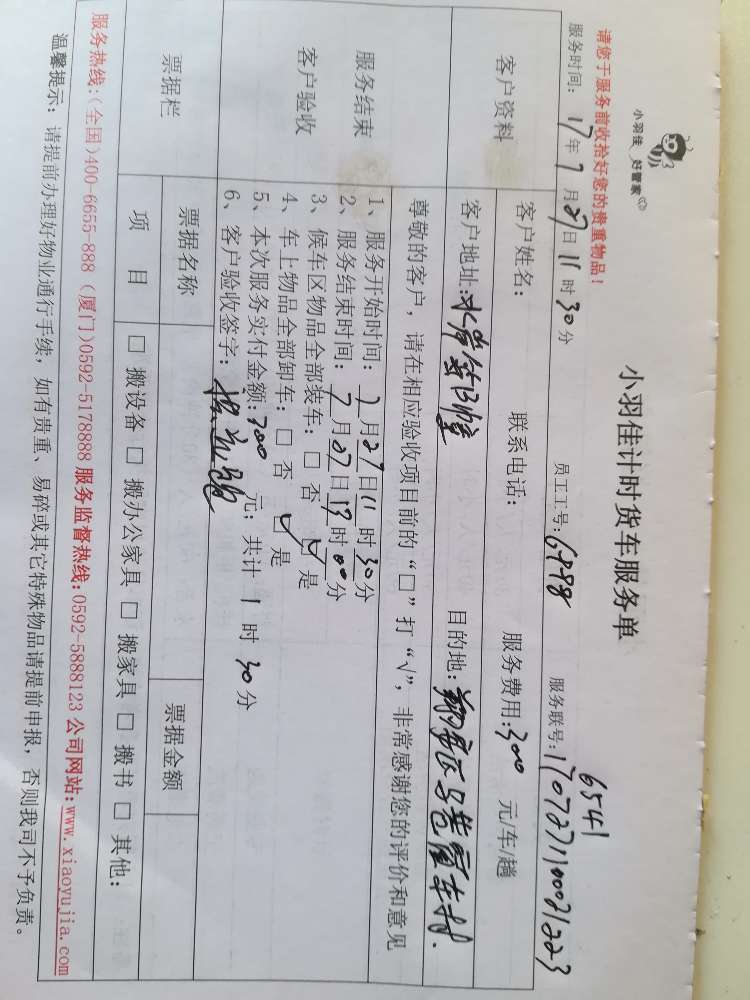 小羽佳 好管家
小羽佳计时货车服务单
6541
请您于服务前收拾好您的贵重物品！
服务时间: 17年7月27日11时30分 员工工号: 6898 服务联号: 170727110021223
客户资料
客户姓名: 联系电话: 服务费用: 300 元/车/趟
客户地址: 目的地:
服务结束
客户验收
尊敬的客户，请在相应验收项目前的“□”打“√”，非常感谢您的评价和意见
1、服务开始时间: 7月27日11时30分
2、服务结束时间: 7月27日13时00分
3、候车区物品全部装车: □ 否 ☑ 是
4、车上物品全部卸车: □ 否 ☑ 是
5、本次服务实付金额: 300 元; 共计 1 时 30 分
6、客户验收签字:
票据栏
票据名称 票据金额
项 目 □ 搬设备 □ 搬办公家具 □ 搬家具 □ 搬书 □ 其他:
服务热线:(全国)400-6655-888 (厦门)0592-5178888 服务监督热线:0592-5888123 公司网站:www.xiaoyujia.com
温馨提示: 请提前办理好物业通行手续, 如有贵重、易碎或其它特殊物品请提前申报, 否则我司不予负责。